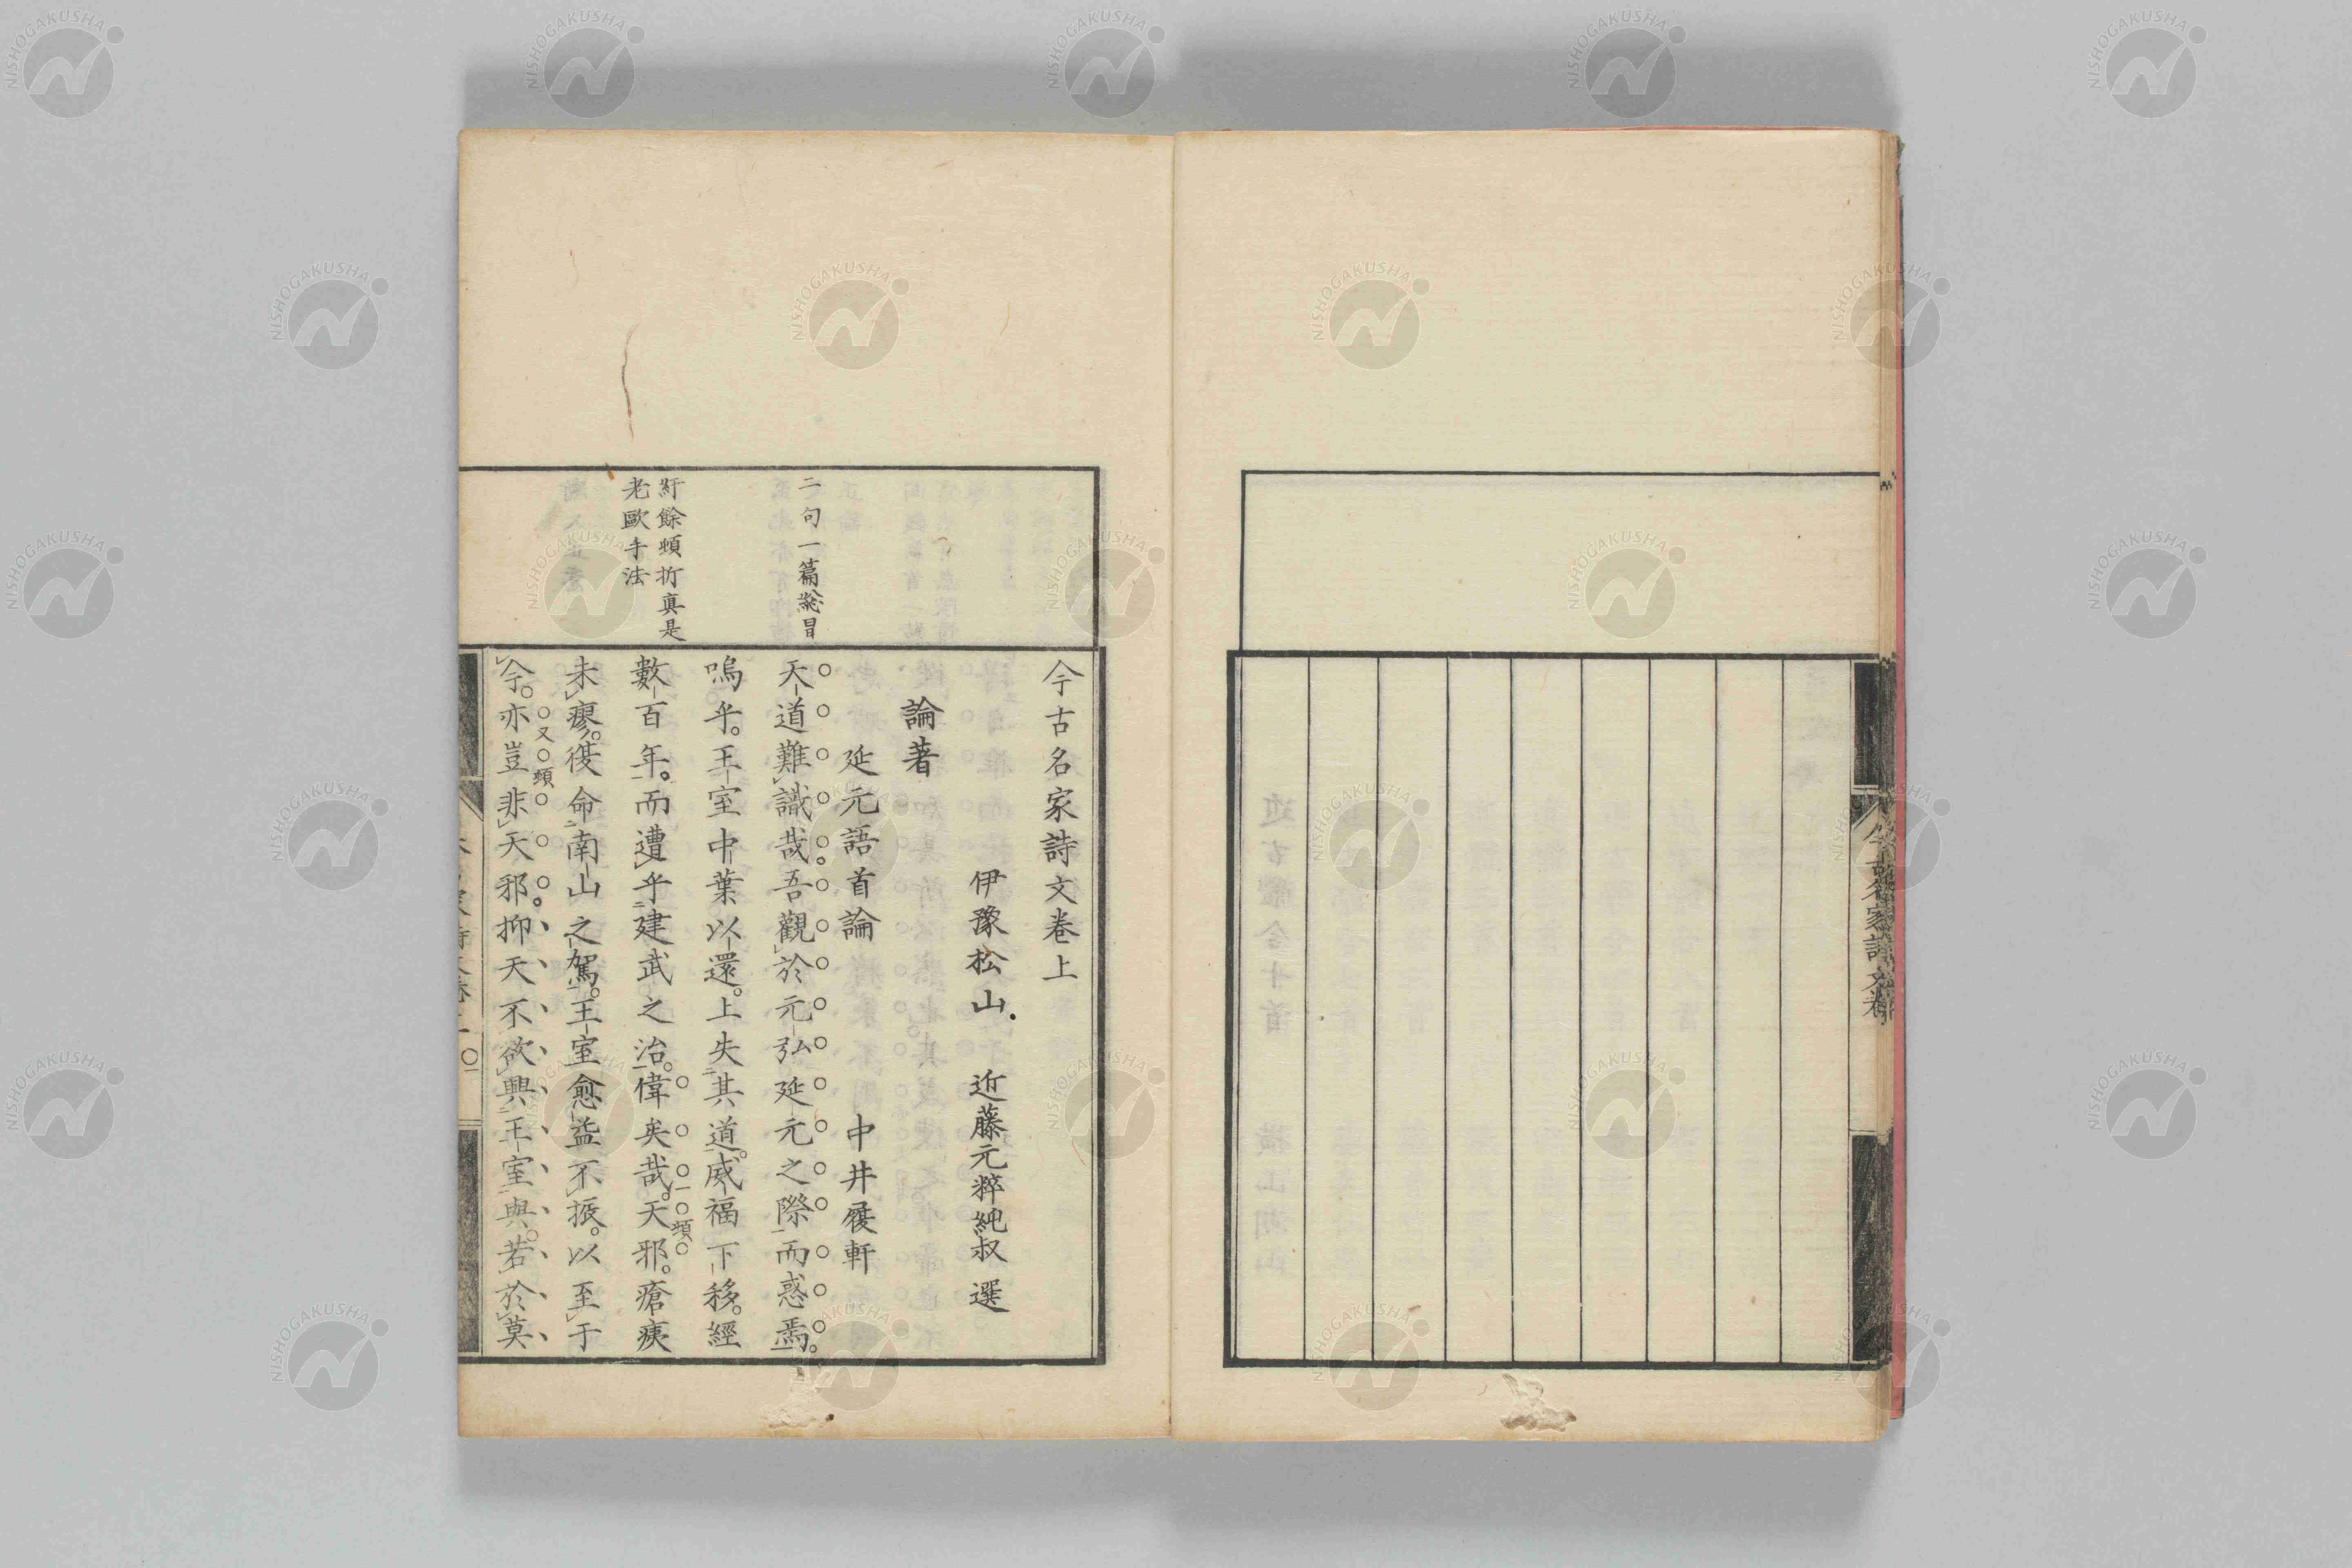 今古名家詩文卷上
伊豫松山 近藤元粹純叔選
論著
延元語首論 中井履軒
天道難識哉。吾觀於元弘延元之際而惑焉。
嗚乎。王室中葉以還。上失其道。威福下移。經
數百年。而遭乎建武之治。偉矣哉。天邪。瘡痍
一頓
未瘳。復命南山之駕。王室愈益不振。以至于
今。亦豈非天邪。抑天不欲興王室與。若於莫
又頓
二句一篇總冒
紆餘頓折真是
老歐手法
NISHOGAKUSHA